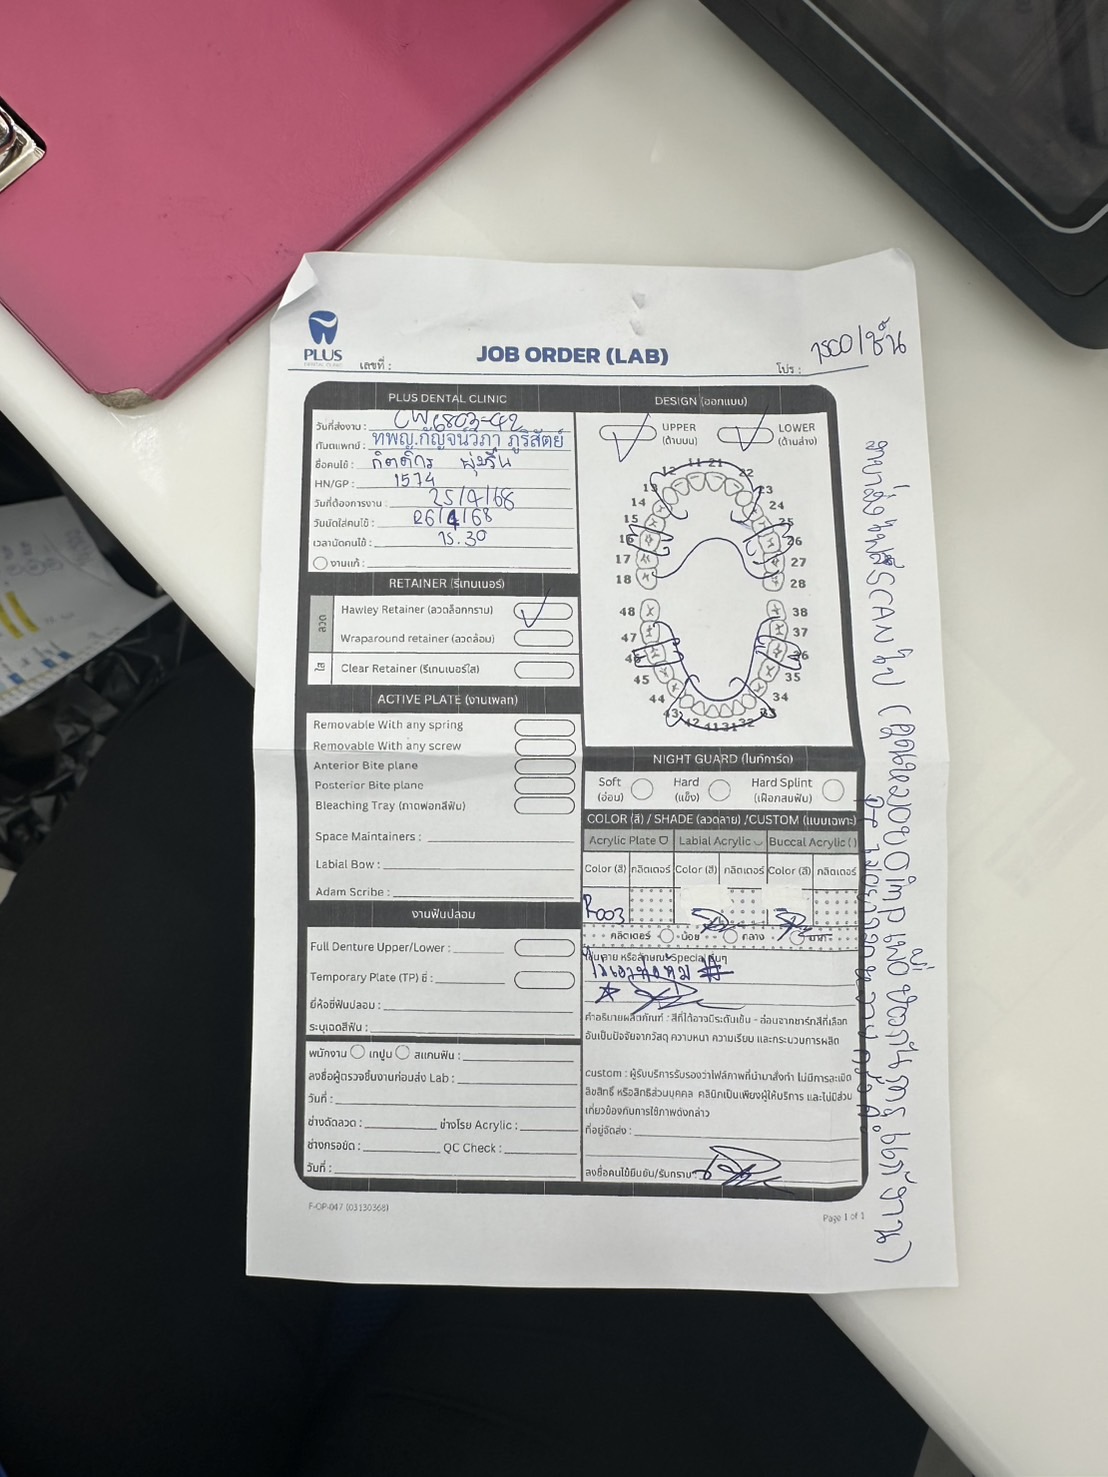 PLUS
DENTAL CLINIC
เลขที่ :
JOB ORDER (LAB)
โปร : 1500/ชิ้น
PLUS DENTAL CLINIC
วันที่ส่งงาน : CW6803-42
ทันตแพทย์ : ทพญ.กัญจน์วิภา ภูริสัตย์
ชื่อคนไข้ :
HN/GP : 1574
วันที่ต้องการงาน : 25/4/68
วันนัดใส่คนไข้ : 26/4/68
เวลานัดคนไข้ : 15.30
งานแก้ :
RETAINER (รีเทนเนอร์)
ลวด
Hawley Retainer (ลวดล็อกกราม)
Wraparound retainer (ลวดล้อม)
ใส
Clear Retainer (รีเทนเนอร์ใส)
ACTIVE PLATE (งานเพลท)
Removable With any spring
Removable With any screw
Anterior Bite plane
Posterior Bite plane
Bleaching Tray (ถาดฟอกสีฟัน)
Space Maintainers :
Labial Bow :
Adam Scribe :
งานฟันปลอม
Full Denture Upper/Lower :
Temporary Plate (TP) ซี่ :
ยี่ห้อซี่ฟันปลอม :
ระบุเฉดสีฟัน :
พนักงาน เทปูน สแกนฟัน :
ลงชื่อผู้ตรวจชิ้นงานก่อนส่ง Lab :
วันที่ :
ช่างดัดลวด : ช่างโรย Acrylic :
ช่างกรอขัด : QC Check :
วันที่ :
DESIGN (ออกแบบ)
UPPER
(ด้านบน)
LOWER
(ด้านล่าง)
12 11 21 22
13 23
14 24
15 25
16 26
17 27
18 28
48 38
47 37
46 36
45 35
44 34
43 42 41 31 32 33
NIGHT GUARD (ไนท์การ์ด)
Soft
(อ่อน)
Hard
(แข็ง)
Hard Splint
(เฝือกสบฟัน)
COLOR (สี) / SHADE (ลวดลาย) /CUSTOM (แบบเฉพาะ)
Acrylic Plate Labial Acrylic Buccal Acrylic ( )
Color (สี) กลิตเตอร์ Color (สี) กลิตเตอร์ Color (สี) กลิตเตอร์
R003
กลิตเตอร์ น้อย กลาง มาก
หรือลักษณะ Special อื่นๆ
คำอธิบายผลิตภัณฑ์ : สีที่ได้อาจมีระดับเข้ม - อ่อนจากชาร์ทสีที่เลือก
อันเป็นปัจจัยจากวัสดุ ความหนา ความเรียบ และกระบวนการผลิต
custom : ผู้รับบริการรับรองว่าไฟล์ภาพที่นำมาสั่งทำ ไม่มีการละเมิด
ลิขสิทธิ์ หรือสิทธิส่วนบุคคล คลินิกเป็นเพียงผู้ให้บริการ และไม่มีส่วน
เกี่ยวข้องกับการใช้ภาพดังกล่าว
ที่อยู่จัดส่ง :
ลงชื่อคนไข้ยืนยัน/รับทราบ :
F-OP-047 (03130368)
Page 1 of 1